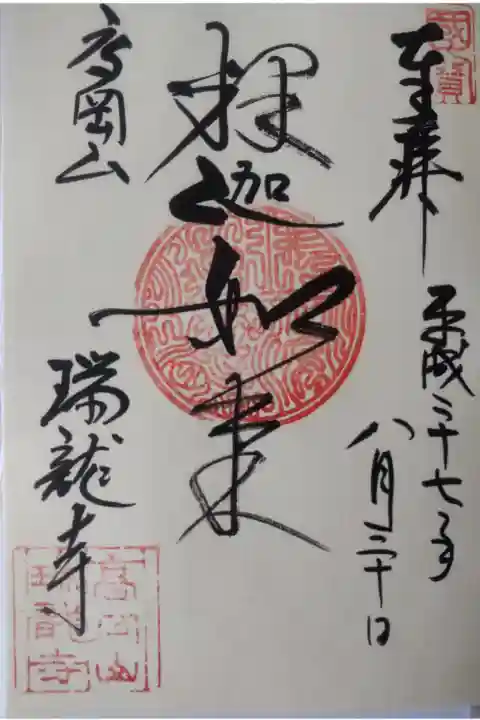 國寶
奉拝
平成二十七年
八月二十日
釋迦如来
高岡山
瑞龍寺
高岡山
瑞龍寺